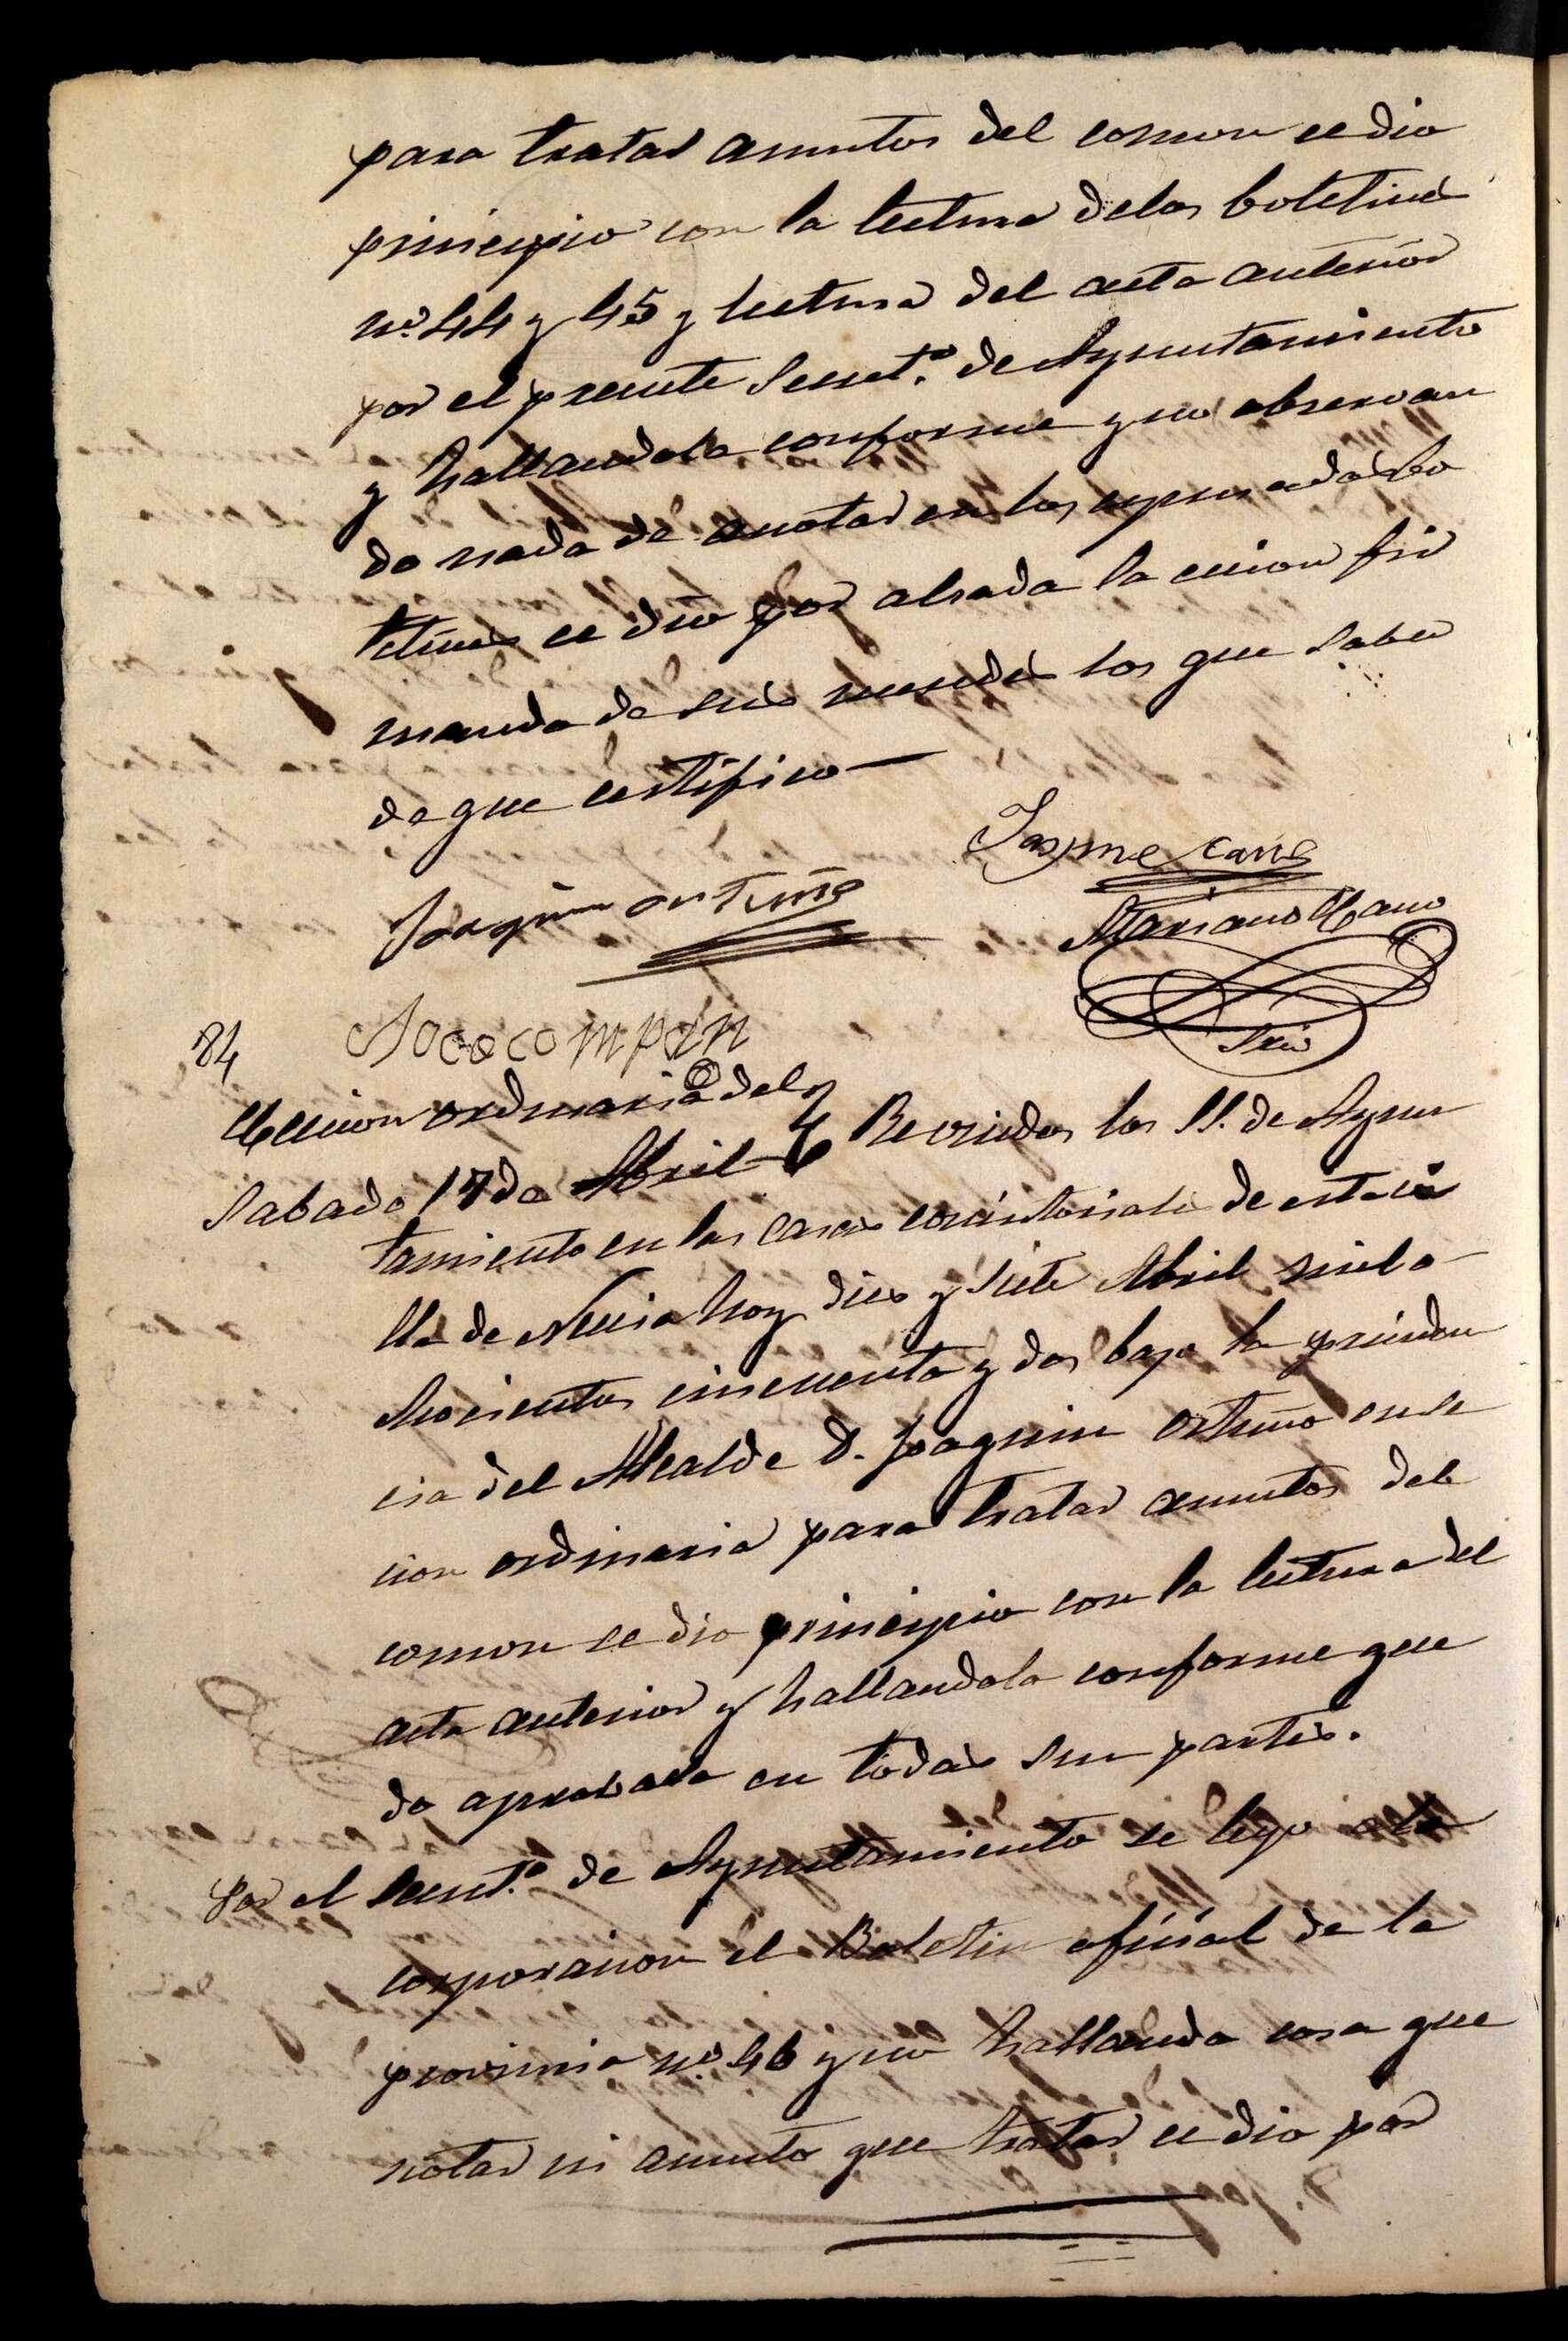 para tratar asuntos del comun se dio
principio con la lectura delos boletines
nº 44 y 45 y lectura del acta anterior
por el presente Secret.º de Ayuntamiento
y hallandola conforme y no observan
do nada de anotar en los espresados bo
letines se dio por alsada la cecion fir
mando de sus mersedes los que saben
de que certifico —
Jayme Cano
Joaquin ortuño
Mariano Cano
Srio
84
Cecion ordinaria del
Sabado 17 de Abril
Reonidos los SS. de Ayun
tamiento en las casas concistoriales de esta vi
lla de Nucia hoy dies y siete Abril mil o
chocientos cincuenta y dos bajo la preciden
cia del Alcalde D. Joaquin Ortuño en se
cion ordinaria para tratar asuntos del
comun se dio principio con la lectura del
acta anterior y hallandola conforme que
do aprobada en todas sus partes.
Por el Secret.º de Ayuntamiento se leyo a la
corporacion el Boletin oficial de la
provincia nº 46 y no hallando cosa que
notar ni asunto que tratar se dio por